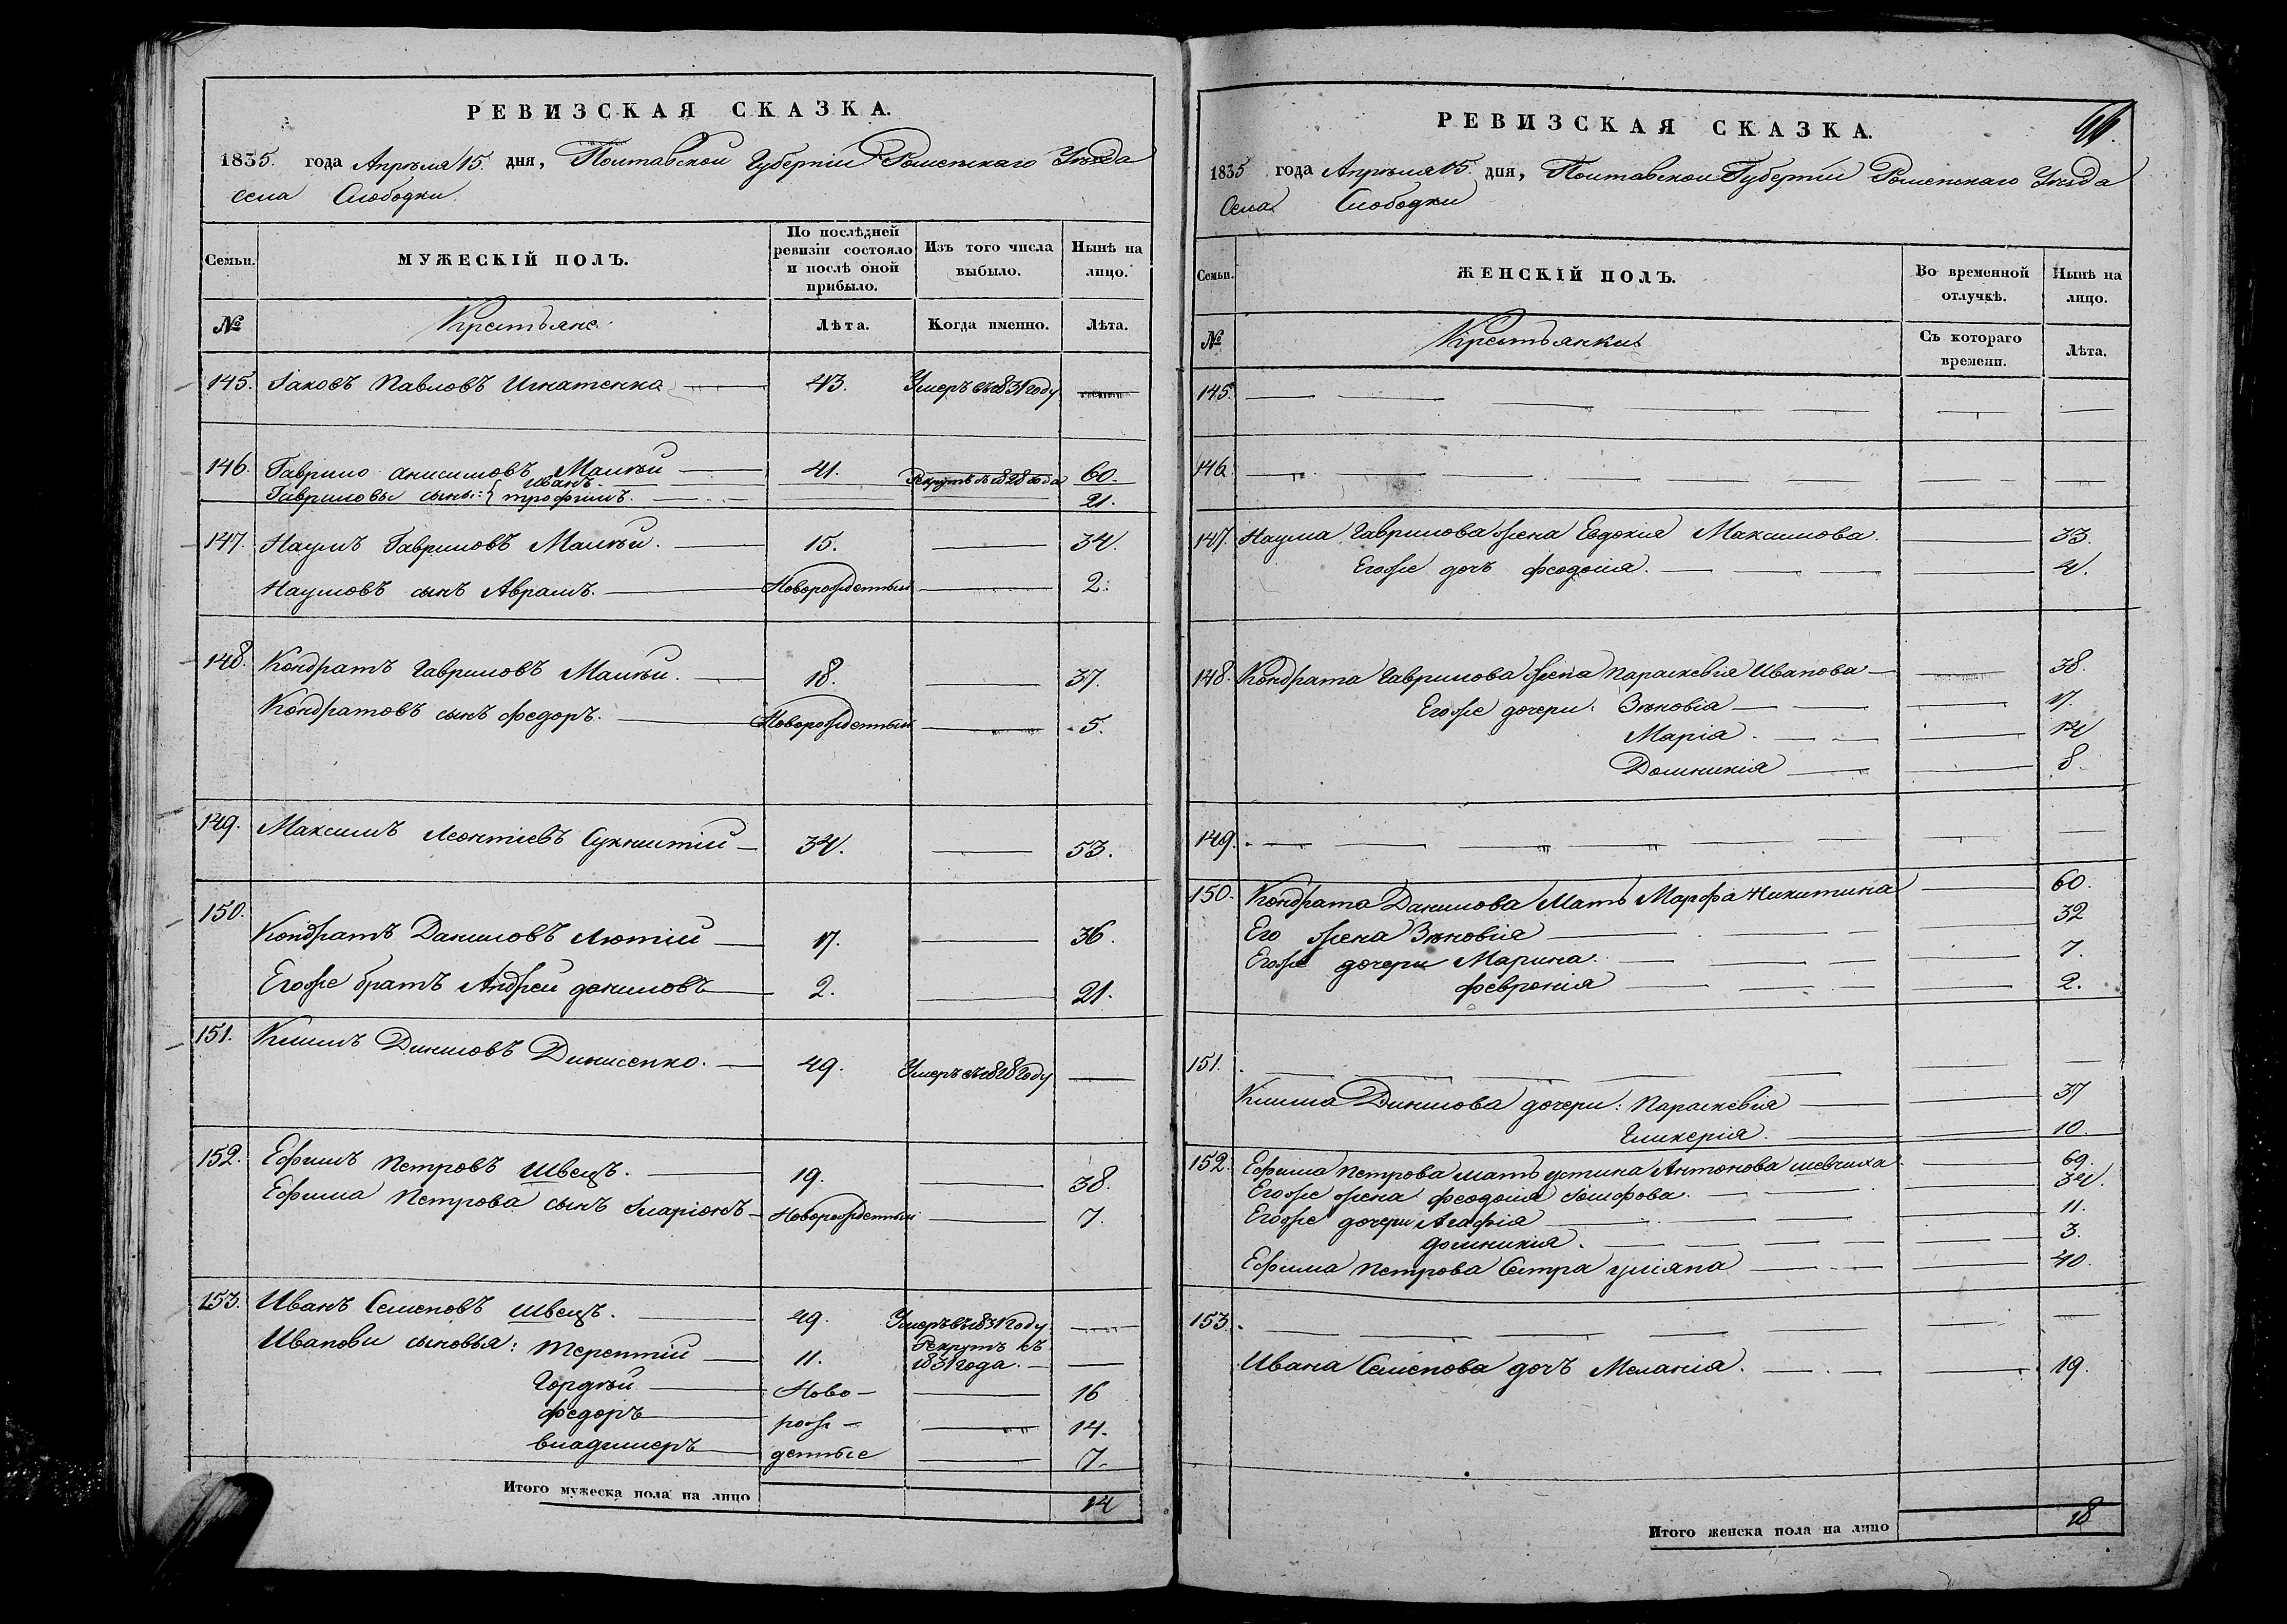 РЕВИЗСКАЯ СКАЗКА.
1835. года Апрѣля 15. дня, Полтавской Губерніи Роменскаго Уѣзда
села Слободки
Семьи.
МУЖЕСКІЙ ПОЛЪ.
По послѣдней ревизіи состояло и послѣ оной прибыло.
Изъ того числа выбыло.
Нынѣ на лицо.
№
Крестьяне
Лѣта.
Когда именно.
Лѣта.
145. Іаковъ Павловъ Игнатенко 43. Умеръ въ 1831 году
146. Гаврило Анисимовъ Малѣй 41. 60.
Гавриловы сыны: Иванъ Рекрутъ съ 1828 года
трофимъ. 21.
147. Наумъ Гавриловъ Малѣй. 15. 34.
Наумовъ сынъ Аврамъ. Новорожденный 2.
148. Кондратъ Гавриловъ Малѣй. 18. 37.
Кондратовъ сынъ Федоръ. Новорожденный 5.
149. Максимъ Леонтіевъ 34. 53.
150. Кондратъ Даниловъ Лютій 17. 36.
Егоже братъ Андрей даниловъ 2. 21.
151. Климъ 49. Умеръ въ 1828 году
152. Ефимъ Петровъ Швецъ. 19. 38.
Ефима Петрова сынъ Иларіонъ Новорожденный 7.
153. Иванъ Семеновъ Швецъ. 49. Умеръ въ 1831 году
Ивановы сыновья: Терентій 11. Рекрутъ съ 1831 года.
Гордѣй Ново- 16
федоръ рож- 14.
владимеръ денные 7.
Итого мужеска пола на лицо 14
РЕВИЗСКАЯ СКАЗКА.
1835 года Апрѣля 15. дня, Полтавской Губерніи Роменскаго Уѣзда
Села Слободки
Семьи.
ЖЕНСКІЙ ПОЛЪ.
Во временной отлучкѣ.
Нынѣ на лицо.
№
Крестьянки
Съ котораго времени.
Лѣта.
145.
146.
147. Наума Гаврилова жена Евдокія Максимова. 33.
Егоже дочь феодосія. 4.
148. Кондрата Гаврилова жена Параскевія Иванова 38.
Егоже дочери: Зѣновія 17.
Марія. 14
Домникія 8.
149.
150. Кондрата Данилова Мать Марфа Никитина 60.
Его жена Зѣновія 32
Егоже дочери Марина. 7.
февронія 2.
151.
Клима дочери: Параскевія 37
Гликерія. 10.
152. Ефима Петрова мать устина Антонова шевчиха 69.
Егоже жена феодосія Іосифова. 34.
Егоже дочери Агафія 11.
домникія. 3.
Ефима Петрова Сестра уліяна 40.
153.
Ивана Семенова дочь Меланія. 19.
Итого женска пола на лицо 18